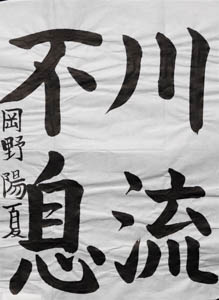 川流
不息
岡野陽夏